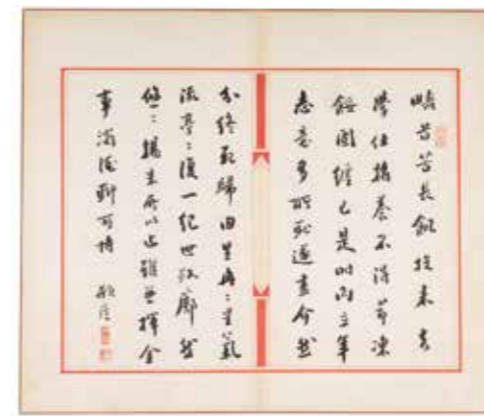 疇昔苦長飢投耒去
學仕將養不得節凍
餒固纏己是時向立年
志意多所恥遂盡介然
分終死歸田里冉〻星氣
流亭〻復一紀世路廓
悠〻楊朱所以止雖無揮金
事濁酒聊可恃